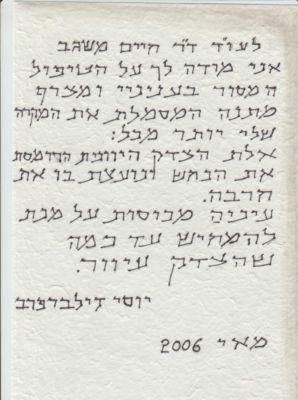 לעו"ד ד"ר חיים משגב
אני מודה לך על הטיפול
המסור בענייניי ומצרף
מתנה המסמלת את המקרה
שלי יותר מכל:
אלת הצדק היוונית הדורסת
את הנחש ונועצת בו את
חרבה.
עיניה מכוסות על מנת
להמחיש עד כמה
שהצדק עיוור.
יוסי זילברברג
מאי 2006